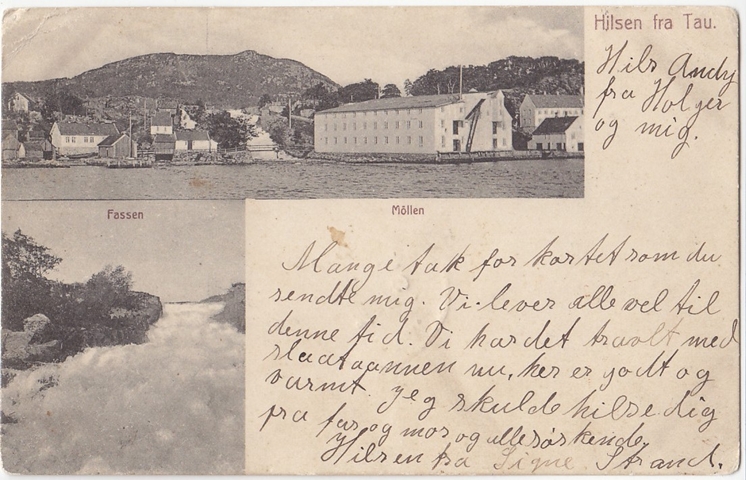 Hilsen fra Tau.
Hils Andy
fra Holger
og mig.
Fossen
Möllen
Mange tak for kortet som du
sendte mig. Vi lever alle vel til
denne tid. Vi har det travlt med
slaataannen nu, her er godt og
varmt. Jeg skulde hilse dig
fra far og mor og alle söskende.
Hilsen fra Signe Strand.